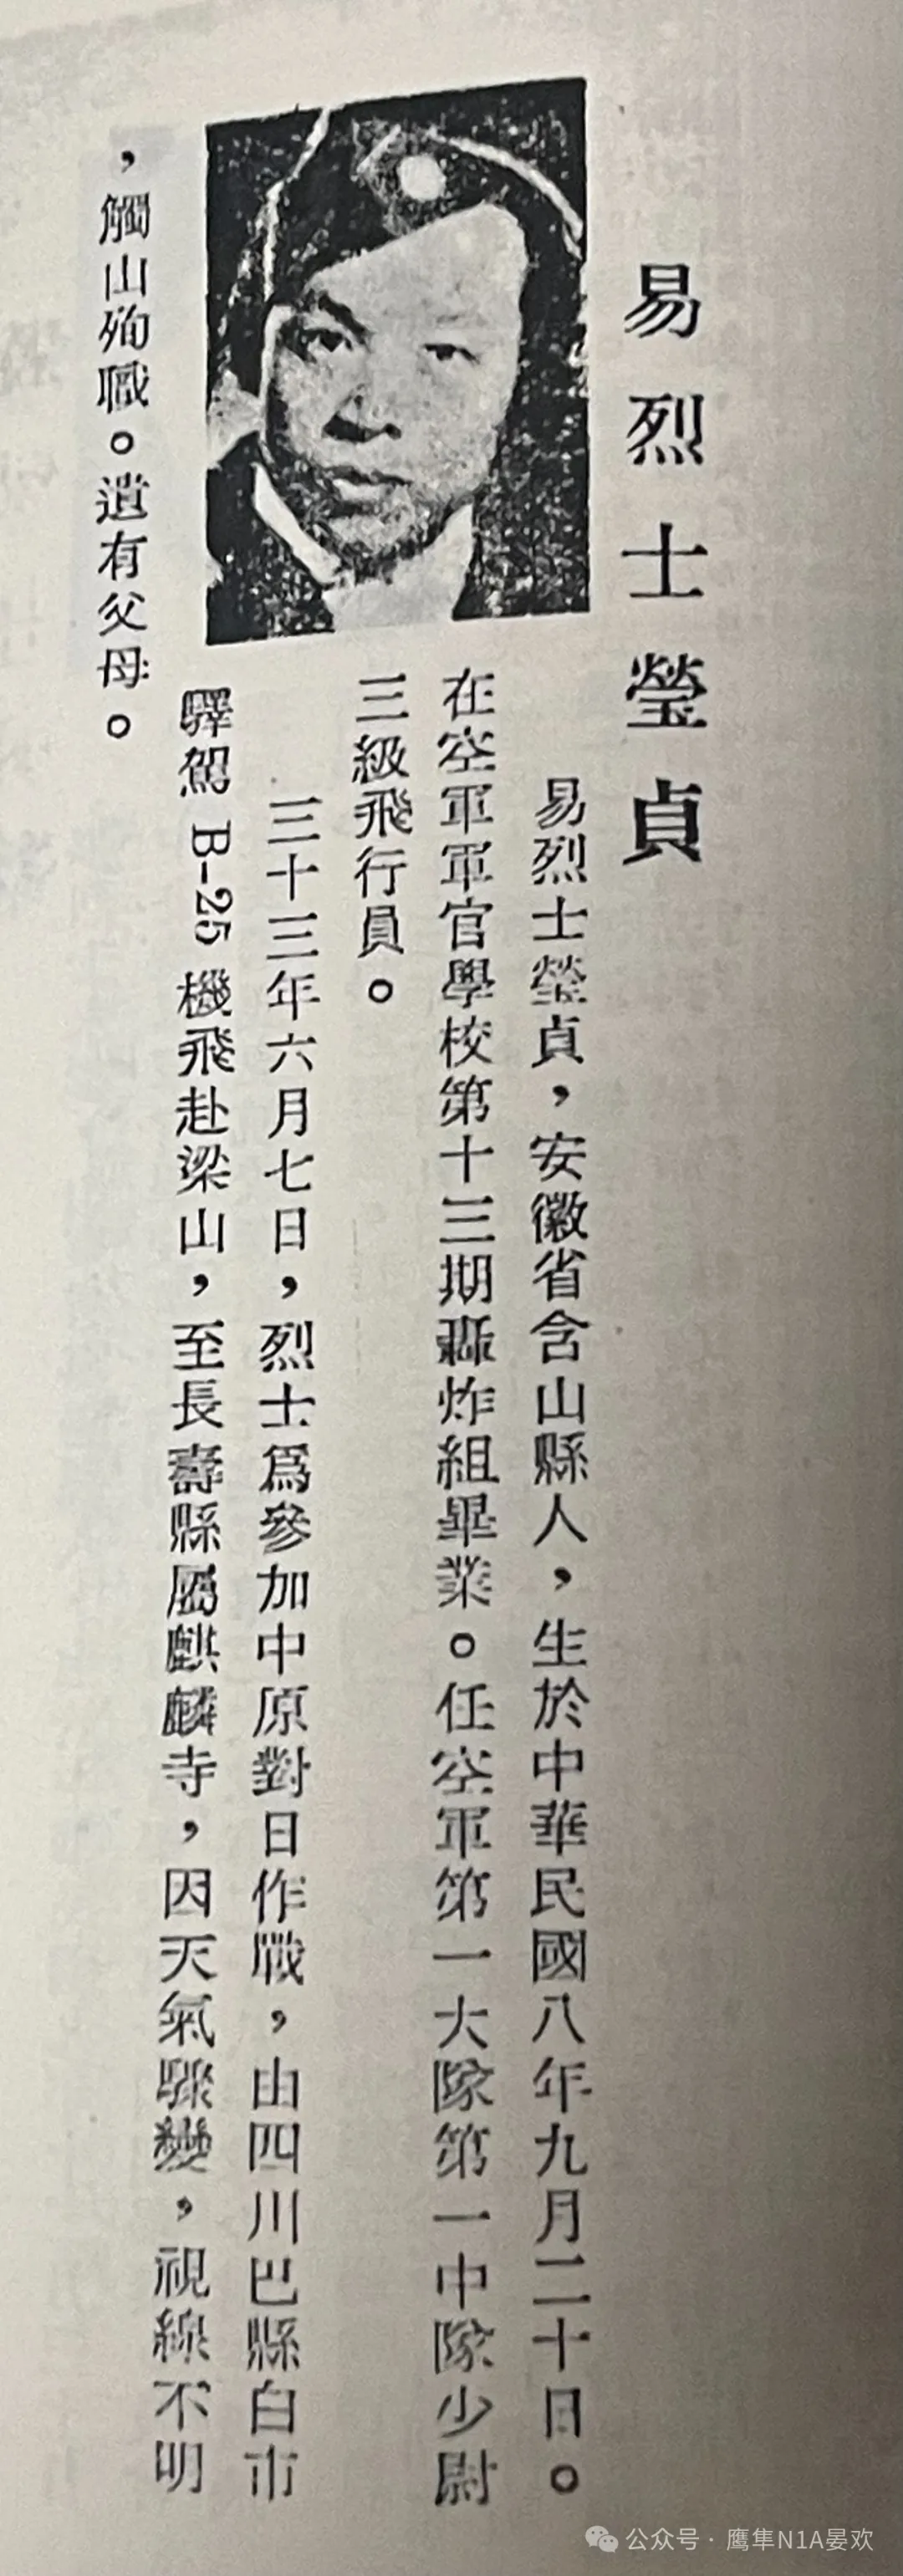 易烈士瑩貞
易烈士瑩貞，安徽省含山縣人，生於中華民國八年九月二十日。
在空軍軍官學校第十三期轟炸組畢業。任空軍第一大隊第一中隊少尉
三級飛行員。
三十三年六月七日，烈士爲參加中原對日作戰，由四川巴縣白市
驛駕B-25機飛赴梁山，至長壽縣屬麒麟寺，因天氣驟變，視線不明
，觸山殉職。遺有父母。
公众号·鹰隼N1A晏欢